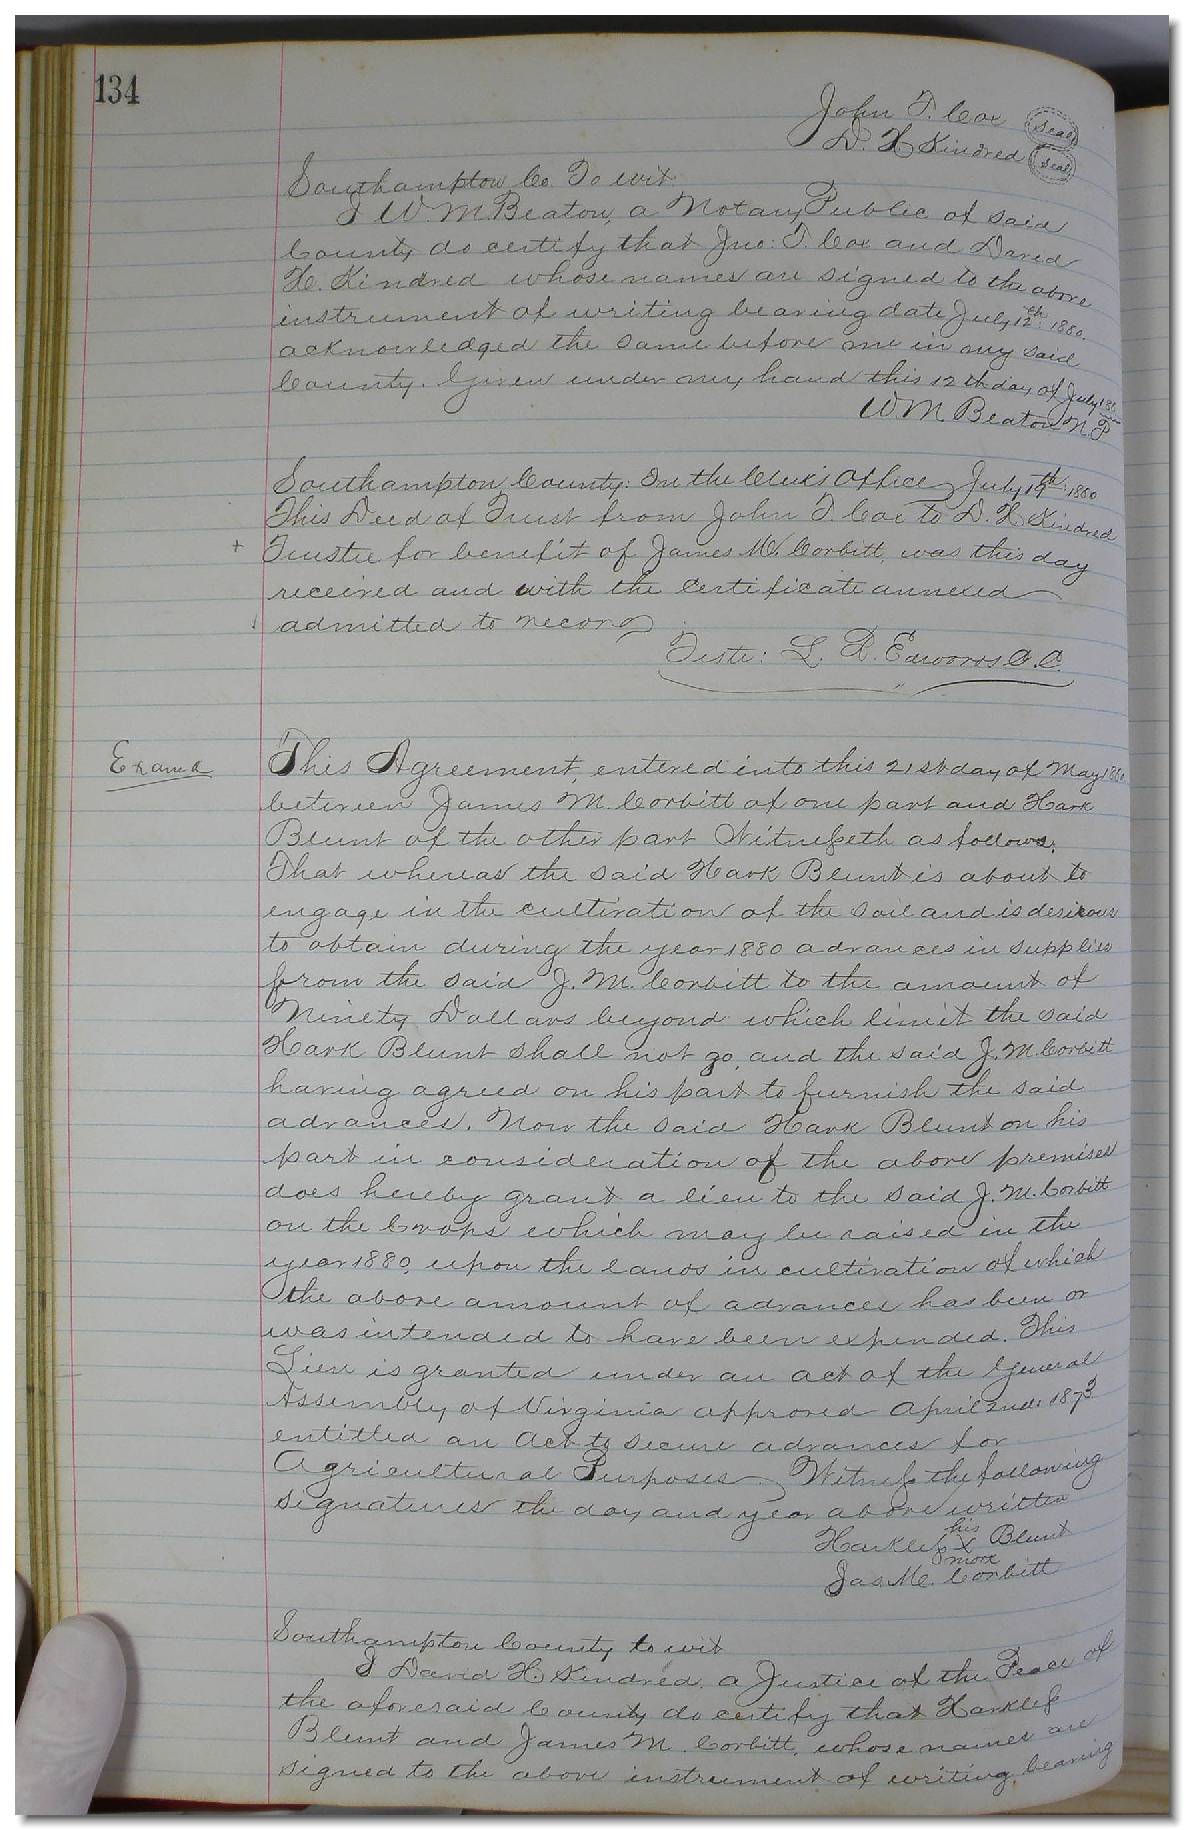 134
John T. Cox (seal)
D. H. Kindred (seal)
Southampton Co. To wit
I W. M. Beaton, a Notary Public of said
County do certify that Jno: T. Cox and David
H. Kindred whose names are signed to the above
instrument of writing bearing date July 12th 1880.
acknowledged the same before me in my said
County. Given under my hand this 12th day of July 188
W M. Beaton N.P
Southampton County: In the Clerk's Office July 19th 1880
This Deed of Trust from John T. Cox to D. H Kindred
+ Trustee for benefit of James M. Corbitt, was this day
received and with the certificate annexed
admitted to record
Teste: L. R. Edwards C. C.
Examd
This Agreement, entered into this 21st day of May 1880
between James M. Corbitt of one part and Hark
Blunt of the other part Witnesseth as follows.
That whereas the said Hark Blunt is about to
engage in the cultivation of the soil and is desirous
to obtain during the year 1880 advances in supplies
from the said J. M. Corbitt to the amount of
Ninety Dollars beyond which limit the said
Hark Blunt shall not go, and the said J. M. Corbitt
having agreed on his part to furnish the said
advances. Now the said Hark Blunt on his
part in consideration of the above premises
does hereby grant a lien to the said J. M. Corbitt
on the Crops which may be raised in the
year 1880, upon the lands in cultivation of which
the above amount of advances has been or
was intended to have been expended. This
Lien is granted under an act of the General
Assembly of Virginia approved April 2nd 1873
entitled an Act to secure advances for
Agricultural Purposes. Witness the following
signatures the day and year above written
his
Harkless X Blunt
mark
Jas. M. Corbitt
Southampton County to wit
I David H. Kindred, a Justice of the Peace of
the aforesaid County do certify that Harkless
Blunt and James M. Corbitt, whose names are
signed to the above instrument of writing bearing